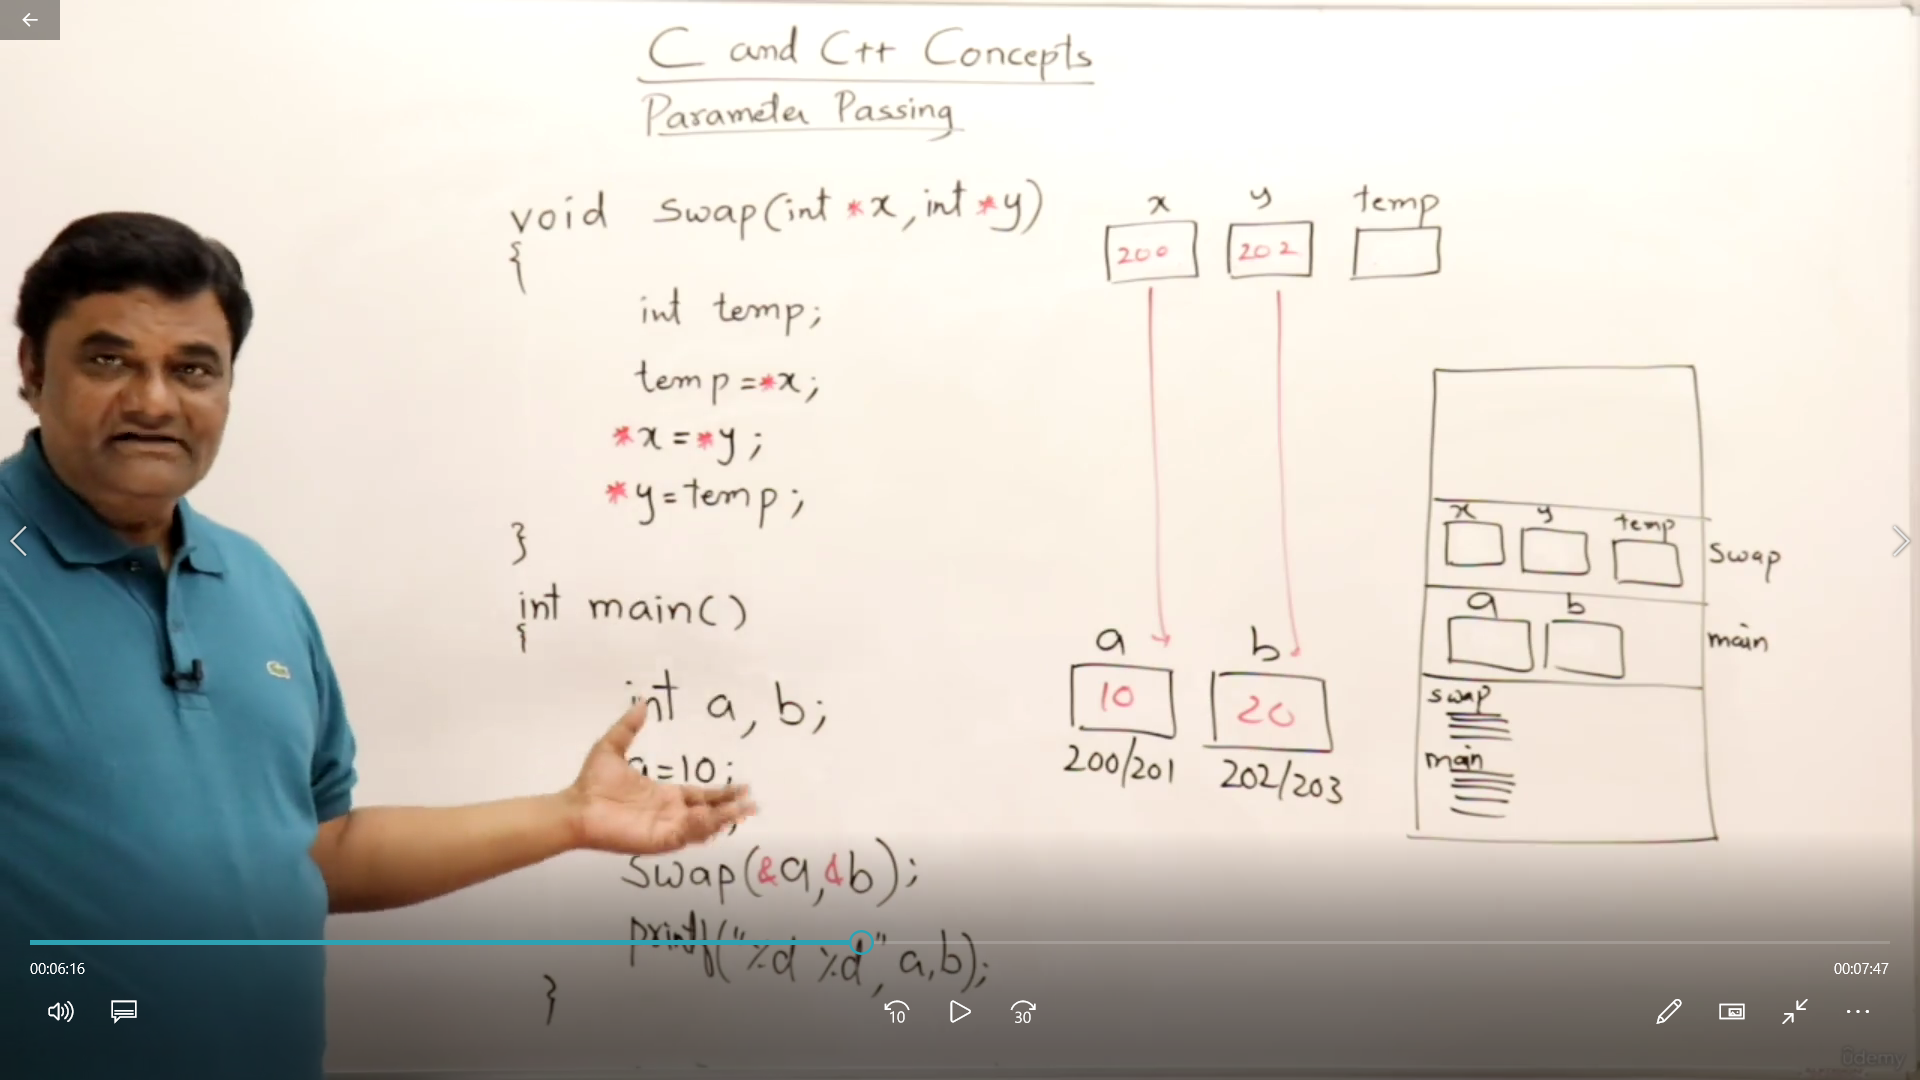 C and C++ Concepts
Parameter Passing
void swap(int *x, int *y)
{
int temp;
temp=*x;
*x=*y;
*y=temp;
}
int main()
{
int a, b;
a=10;
swap(&a,&b);
printf("%d %d", a,b);
}
x y temp
200 202
a b
10 20
200/201 202/203
x y temp
swap
a b
main
swap
main
00:06:16
00:07:47
10
30
ûdemy